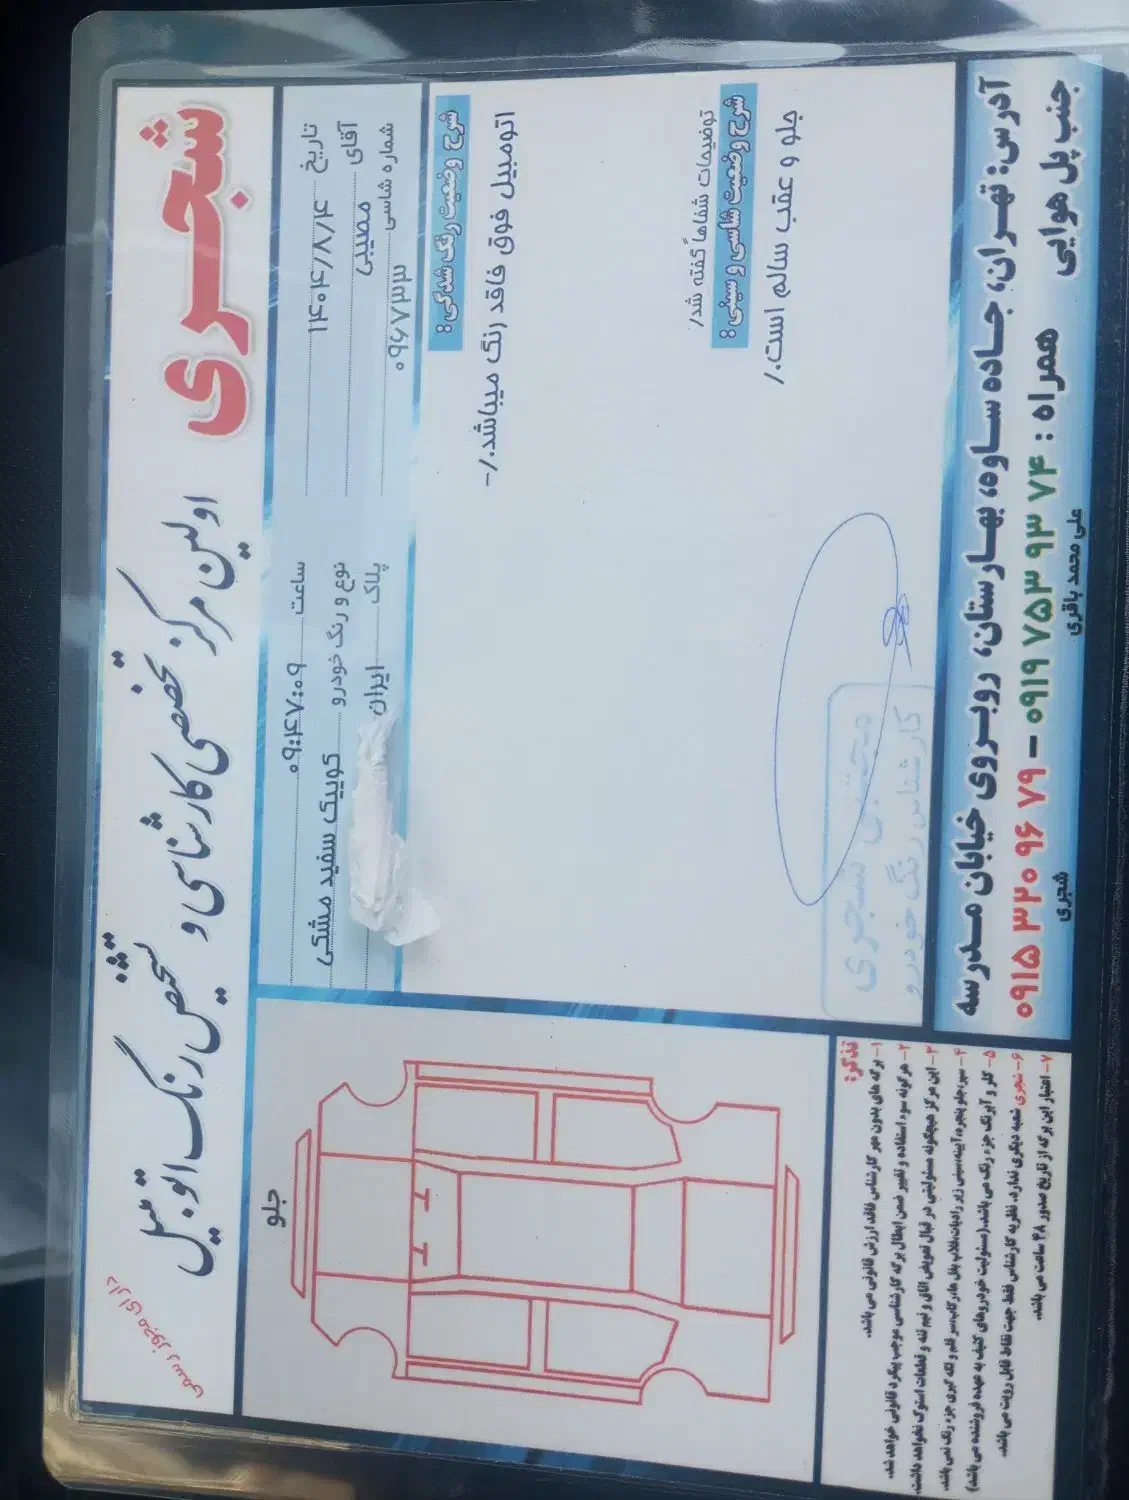 شجری
اولین مرکز تخصصی کارشناسی و تشخیص رنگ اتومبیل
دارای مجوز رسمی
تاریخ ۱۴۰۴/۷/۲۱
ساعت ۰۹:۴۷:۰۹
آقای مصیبی
نوع و رنگ خودرو کوییک سفید مشکی
شماره شاسی ۰۹۶۷۳۳
پلاک ایران
شرح وضعیت رنگ شدگی :
اتومبیل فوق فاقد رنگ میباشد./-
توضیحات شفاها گفته شد/
شرح وضعیت شاسی و سینی :
جلو و عقب سالم است./
شجری
کارشناس رنگ خودرو
جلو
تذکر:
۱- برگه های بدون مهر کارشناس فاقد ارزش قانونی می باشد.
۲- هرگونه سوء استفاده و تغییر ضمن ابطال برگه کارشناسی موجب پیگرد قانونی خواهد شد.
۳- این مرکز هیچگونه مسئولیتی در قبال تعویض اتاق و نیم تنه و قطعات استوک نخواهد داشت.
۴- سپر، جلو پنجره، آیینه، سینی زیر رادیات،
۵- گلر و آبرنگ جزء رنگ می باشد. (مسئولیت خودروهای کثیف به عهده فروشنده می باشد)
۶- شجری شعبه دیگری ندارد. نظریه کارشناس فقط جهت نقاط قابل رویت می باشد.
۷- اعتبار این برگه از تاریخ صدور ۴۸ ساعت می باشد.
آدرس: تهران، جاده ساوه، بهارستان، روبروی خیابان مدرسه
جنب پل هوایی
همراه : ۰۹۱۹ ۷۵۳ ۹۳ ۷۴ - ۰۹۱۵ ۳۲۰ ۹۶ ۷۹
علی محمد باقری
شجری